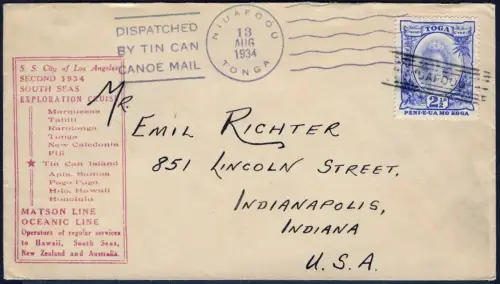 DISPATCHED
BY TIN CAN
CANOE MAIL
NIUAFOOU
13
AUG
1934
TONGA
TOGA
2½
PENI-E-UA MO E OGA
S. S. City of Los Angeles
SECOND 1934
SOUTH SEAS
EXPLORATION CRUISE
Marquesas
Tahiti
Rarotonga
Tonga
New Caledonia
Fiji
★ Tin Can Island
Apia, Samoa
Pago Pago
Hilo, Hawaii
Honolulu
MATSON LINE
OCEANIC LINE
Operators of regular services
to Hawaii, South Seas,
New Zealand and Australia.
Mr.
EMIL RICHTER
851 LINCOLN STREET,
INDIANAPOLIS,
INDIANA
U.S.A.